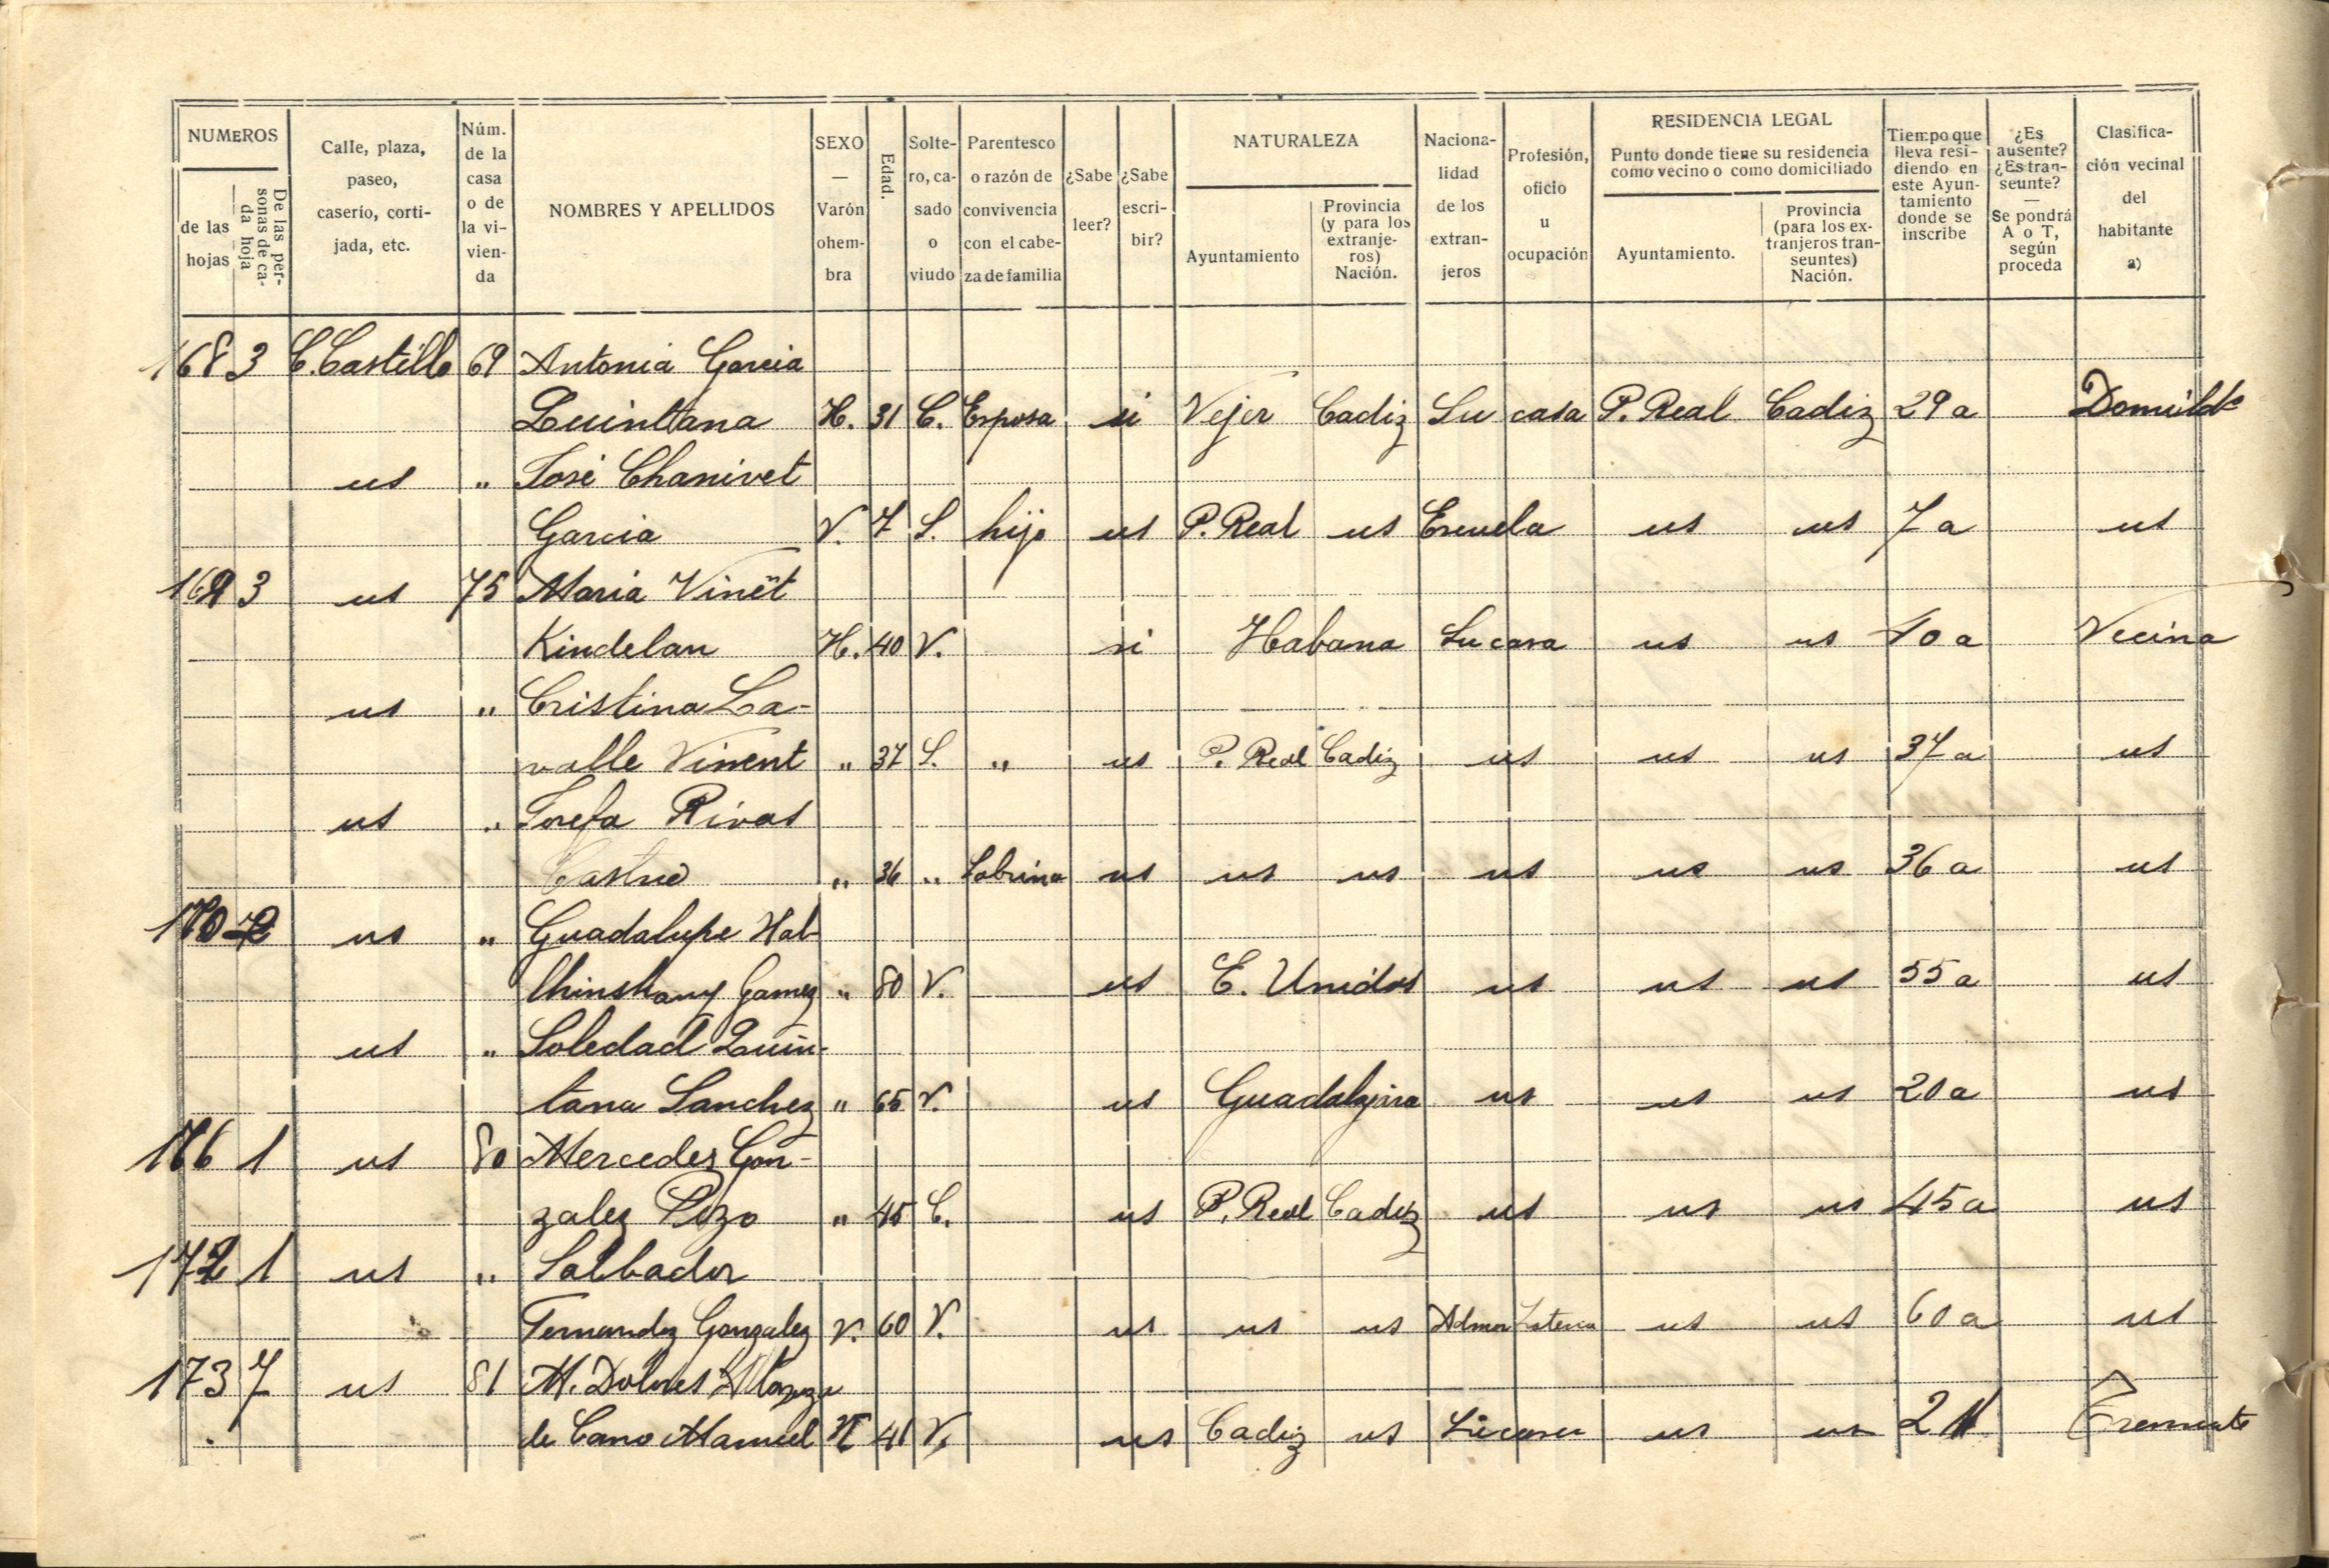 NUMEROS
de las hojas
De las personas de cada hoja
Calle, plaza, paseo, caserío, cortijada, etc.
Núm. de la casa o de la vivienda
NOMBRES Y APELLIDOS
SEXO — Varón ohembra
Edad.
Soltero, casado o viudo
Parentesco o razón de convivencia con el cabeza de familia
¿Sabe leer?
¿Sabe escribir?
NATURALEZA
Ayuntamiento
Provincia (y para los extranjeros) Nación.
Nacionalidad de los extranjeros
Profesión, oficio u ocupación
RESIDENCIA LEGAL
Punto donde tiene su residencia como vecino o como domiciliado
Ayuntamiento.
Provincia (para los extranjeros transeuntes) Nación.
Tiempo que lleva residiendo en este Ayuntamiento donde se inscribe
¿Es ausente? ¿Es transeunte? — Se pondrá A o T, según proceda
Clasificación vecinal del habitante a)
168 3 C. Castillo 69 Antonia Garcia
Quintana H. 31 C. Esposa si Vejer Cadiz Su casa P. Real Cadiz 29 a
us " José Chanivet
Garcia V. 7 S. hijo us P. Real us Escuela us us 7 a us
169 3 us 75 Maria Vinent
Kindelan H. 40 V. si Habana Su casa us us 40 a Vecina
us " Cristina La-
valle Vinent " 37 S. " us P. Real Cadiz us us us 37 a us
us " Josefa Rivas
Castro " 36 " Sobrina us us us us us us 36 a us
170 us " Guadalupe
Gamez " 80 V. us E. Unidos us us us 55 a us
us " Soledad Quin-
tana Sanchez " 65 V. us Guadalajara us us us 20 a us
1 us 80 Mercedes Gon-
zalez Pozo " 45 C. us P. Real Cadiz us us us 45 a us
172 1 us " Salbador
Fernandez Gonzalez V. 60 V. us us us Admor Loteria us us 60 a us
173 7 us 81 M. Dolores
de Cano Manuel H 41 V. us Cadiz us Su casa us us